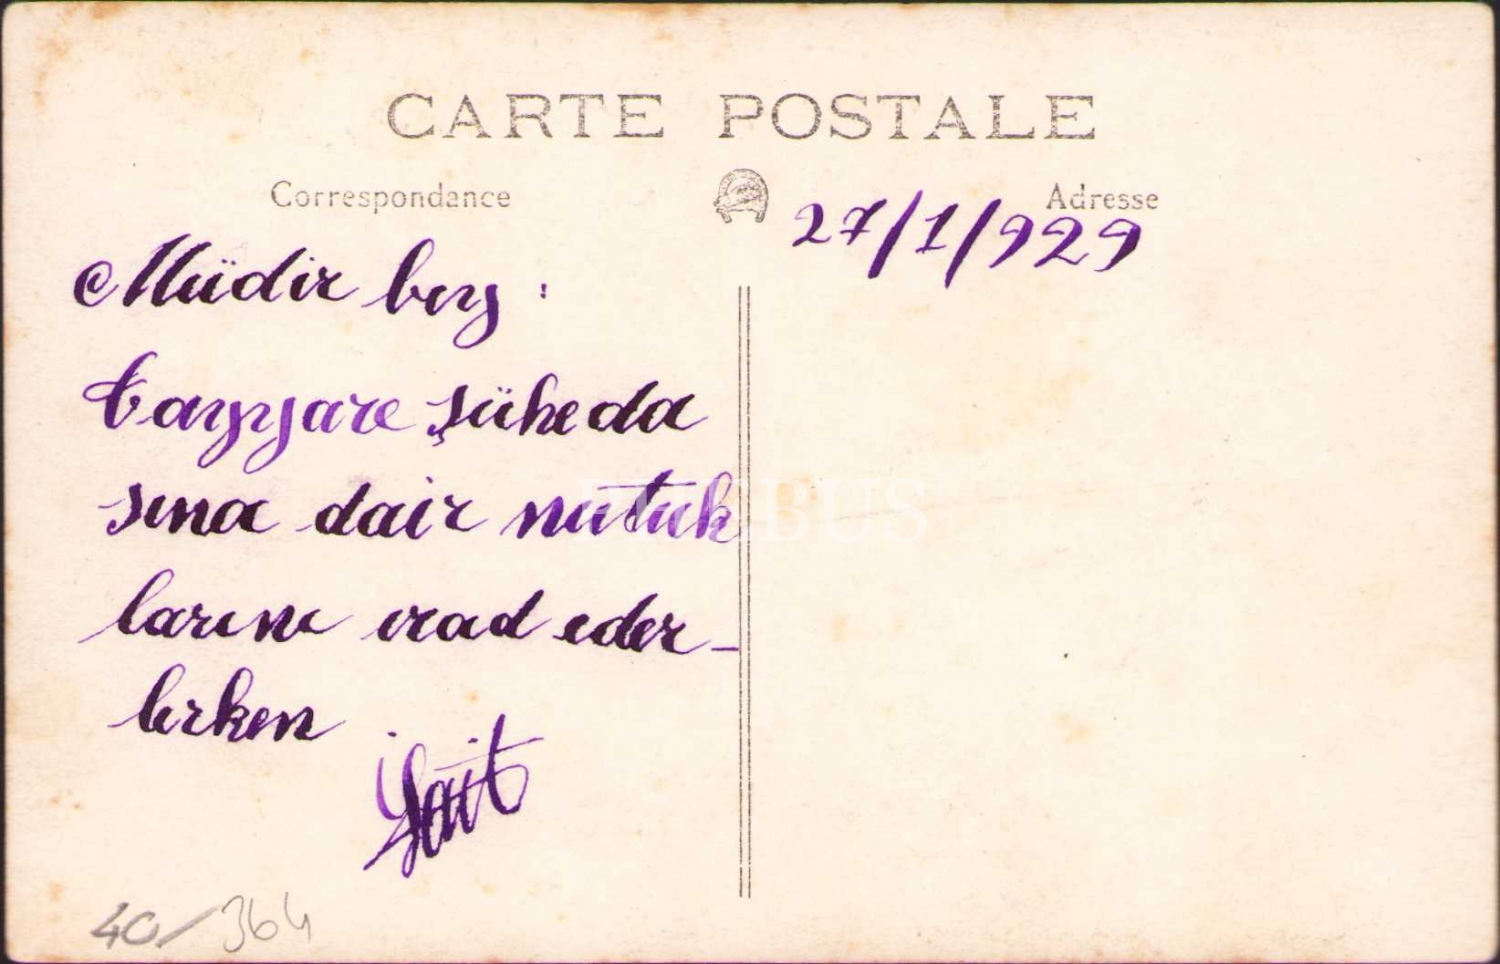 CARTE POSTALE
Correspondance
Adresse
27/1/929
Müdir bey :
Tayyare şüheda
sına dair nutuk
larını irad eder-
lerken
Sait
40/364
PHEBUS